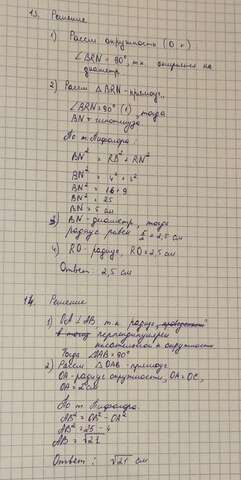 13. Решение
1) Рассм окружность (O r)
∠BRN = 90°, т.к. опирается на
диаметр
2) Рассм △BRN - прямоуг.
∠BRN = 90° (1), тогда
BN - гипотенуза
По т. Пифагора:
BN² = RB² + RN²
BN² = 4² + 3²
BN² = 16+9
BN² = 25
BN = 5 см
3) BN - диаметр, тогда
радиус равен 5/2 = 2,5 см
4) RO - радиус, RO = 2,5 см
Ответ: 2,5 см
14. Решение
1) OA ⊥ AB, т.к. радиус,
перпендикулярен
касательной к окружности
Тогда ∠OAB = 90°
2) Рассм △OAB - прямоуг.
OA - радиус окружности, OA = OC,
OA = 2 см
По т. Пифагора
AB² = OB² - OA²
AB² = 25 - 4
AB = √21
Ответ: √21 см